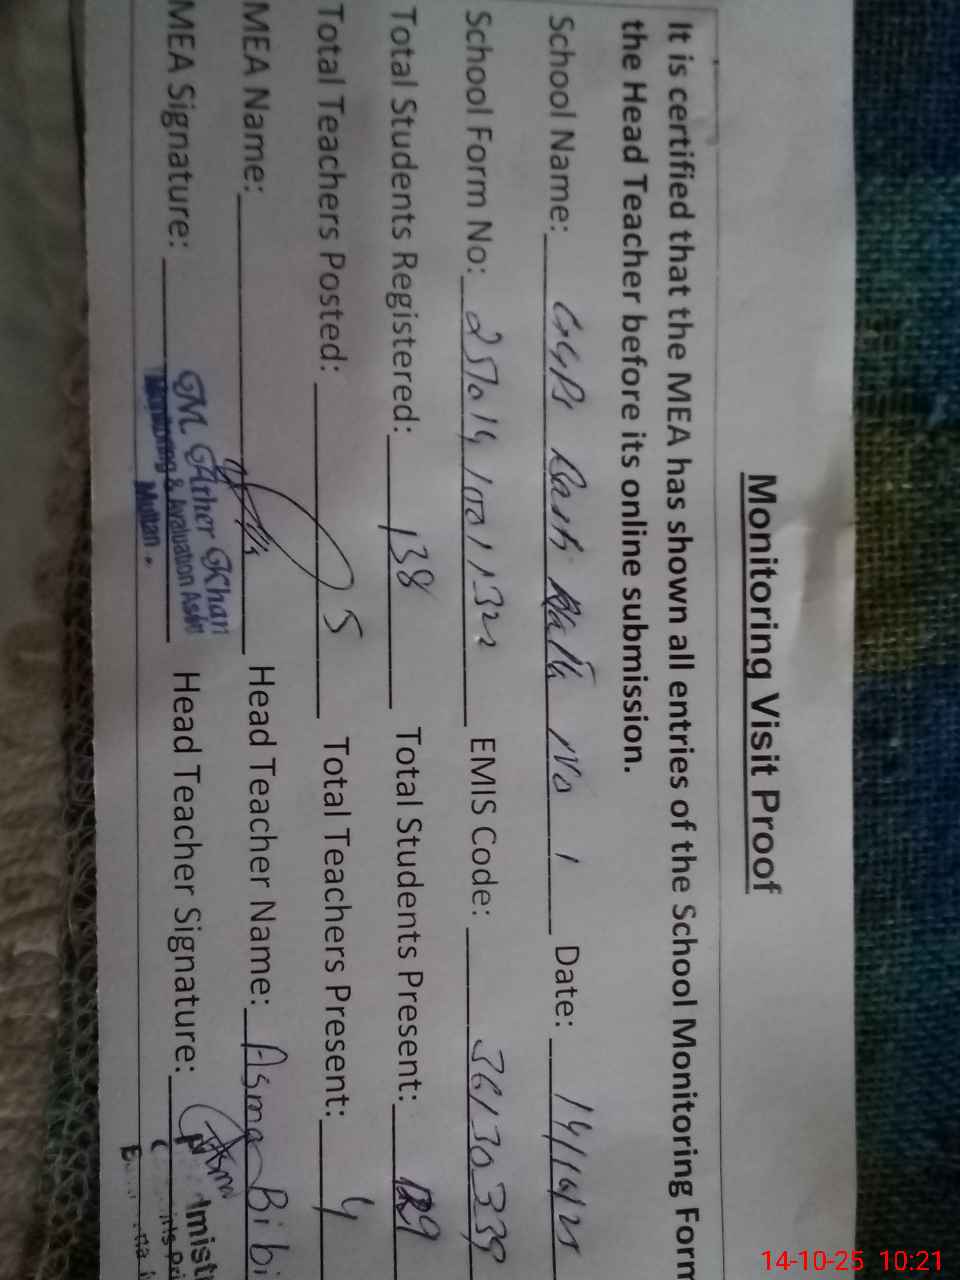 Monitoring Visit Proof
It is certified that the MEA has shown all entries of the School Monitoring Form
the Head Teacher before its online submission.
School Name: GGPS No 1 Date: 14/10/25
School Form No: EMIS Code: 36130339
Total Students Registered: 138 Total Students Present: 129
Total Teachers Posted: 5 Total Teachers Present: 4
MEA Name: Head Teacher Name: Asma Bibi
MEA Signature: M. Ather Khan Head Teacher Signature:
Monitoring & Evaluation Asstt
Multan.
14-10-25 10:21